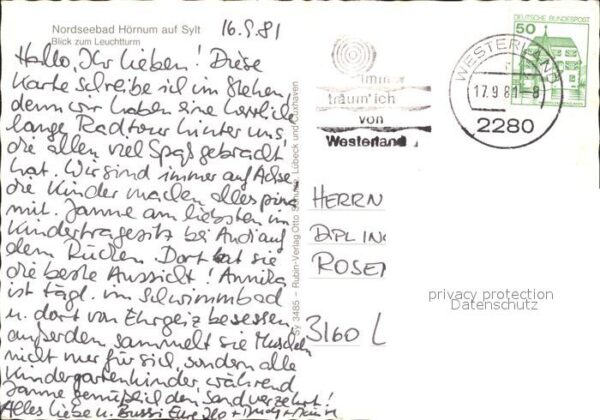 Nordseebad Hörnum auf Sylt
Blick zum Leuchtturm
16.9.81
Hallo, Ihr Lieben! Diese
Karte schreibe ich im Stehen,
denn wir haben eine herrliche
lange Radtour hinter uns,
die allen viel Spaß gebracht
hat. Wir sind immer auf Achse,
die Kinder machen alles prima
mit. Janne am liebsten im
Kindertragesitz bei Andi auf
dem Rücken. Dort hat sie
die beste Aussicht! Annika
ist tägl. im Schwimmbad
u. dort von Ehrgeiz besessen,
außerdem sammelt sie Muscheln
nicht nur für sich, sondern alle
Kindergartenkinder, während
Janne genüßlich den Sand verzehrt!
Alles Liebe u. Bussi Eure
Sy 3485 – Rubin-Verlag Otto Lübeck und Cuxhaven
immer
träum' ich
von
Westerland
DEUTSCHE BUNDESPOST
50
WESTERLAND
17.9.81-8
2280
HERRN
DIPL ING
ROSE
3160 L
privacy protection
Datenschutz